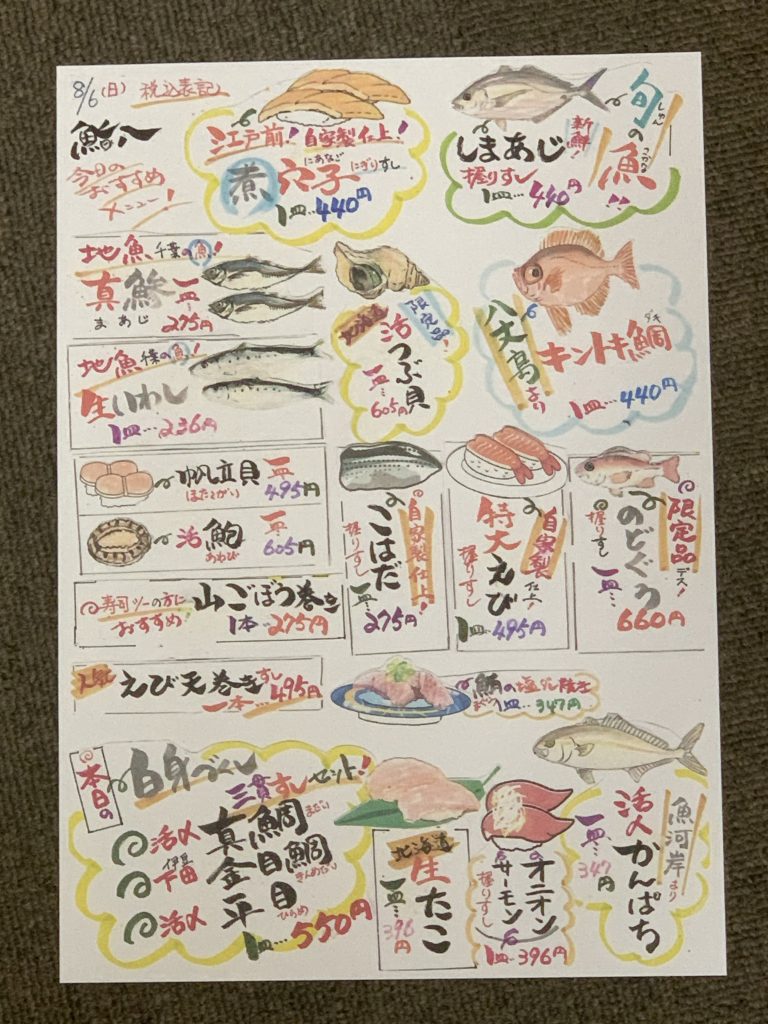 8/6(日) 税込表記
鮨八
今日の
おすすめ
メニュー!
江戸前! 自家製仕上!
煮穴子 にぎりすし
にあなご
1皿…440円
旬の魚!!
しゅん
さかな
新鮮!
しまあじ
握りすし
1皿…440円
地魚 千葉の魚!
真鯵 一皿…
まあじ 275円
地魚 千葉の魚!
生いわし
1皿…236円
北海道
活つぶ貝
限定品
一皿…
605円
八丈島より
キントキ鯛
ダイ
1皿…440円
帆立貝 一皿
ほたてがい 495円
活鮑 一皿
あわび 605円
寿司ツーの方に
おすすめ!
山ごぼう巻き
1本…275円
人気
えび天巻きすし
一本…495円
自家製仕上!
こはだ
握りすし
一皿…
275円
自家製仕上!
特大えび
握りすし
1皿…495円
限定品デス!
のどぐろ
握りすし
一皿…
660円
鮪の塩だれ焼き
まぐろ 1皿…347円
本日の
白身づくし
三貫すしセット!
活〆 真鯛 まだい
伊豆
下田 金目鯛 きんめだい
活〆 平目 ひらめ
1皿…550円
北海道
生たこ
一皿…
396円
オニオン
サーモン
握りすし
1皿…396円
魚河岸より
活〆かんぱち
一皿…
347円